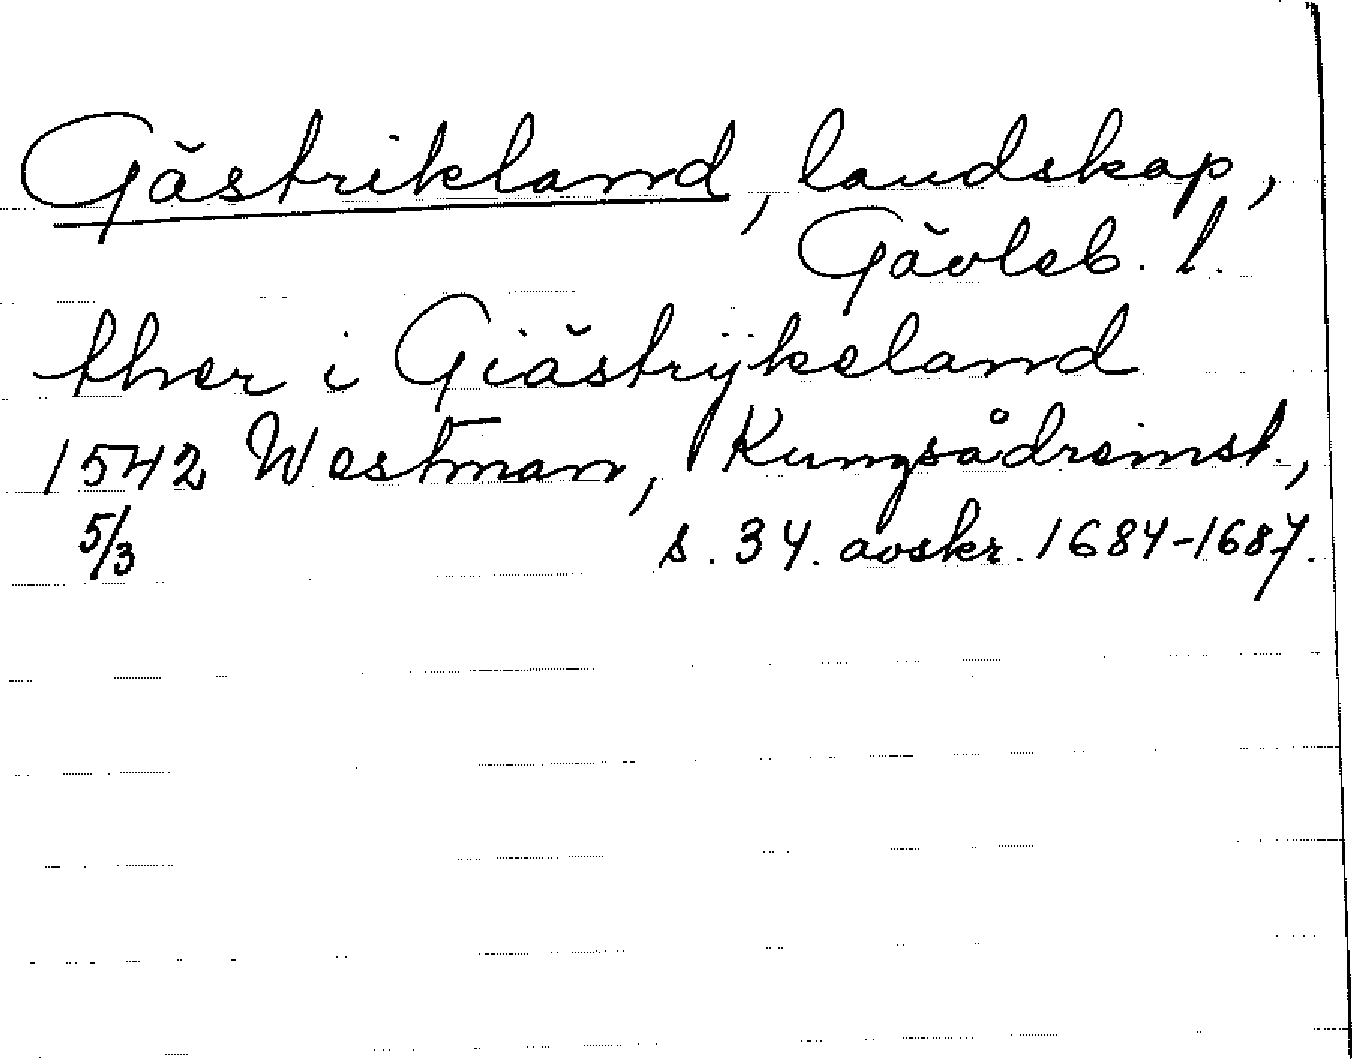 Gästrikland, landskap,
Gävleb. l.
ther i Giästrÿkeland
1542 Westman, Kungsådreinst.,
5/3 s. 34. avskr. 1684-1687.